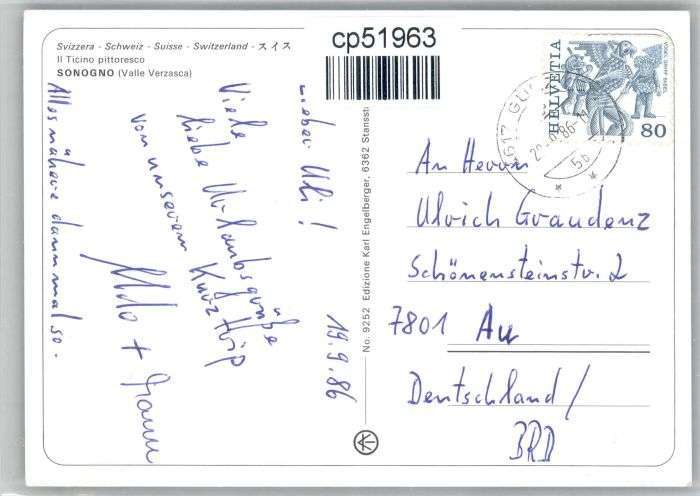 Svizzera - Schweiz - Suisse - Switzerland - スイス
Il Ticino pittoresco
SONOGNO (Valle Verzasca)
cp51963
HELVETIA
80
No. 9252 Edizione Karl Engelberger, 6362 Stansstl
19.9.86
Lieber Uli!
Viele
liebe Urlaubsgrüße
von unserem Kurztrip
Udo +
Alles nähere dann mal so.
An Herrn
Ulrich Graudenz
Schönensteinstr. 2
7801 Au
Deutschland/
BRD